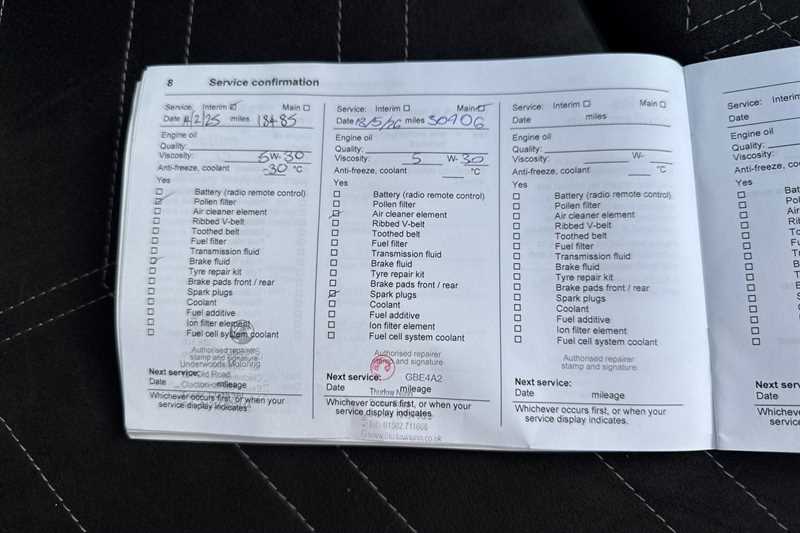 8 Service confirmation
Service: Interim Main
Date 2/25 miles 18485
Engine oil
Quality:
Viscosity: 5W-30
Anti-freeze, coolant -30 °C
Yes
Battery (radio remote control)
Pollen filter
Air cleaner element
Ribbed V-belt
Toothed belt
Fuel filter
Transmission fluid
Brake fluid
Tyre repair kit
Brake pads front / rear
Spark plugs
Coolant
Fuel additive
Ion filter element
Fuel cell system coolant
Authorised repairer
stamp and signature
Underwoods Motoring
Next service: Old Road
Date mileage
Whichever occurs first, or when your
service display indicates.
Service: Interim Main
Date 18/5/26 miles 30906
Engine oil
Quality:
Viscosity: 5 W- 30
Anti-freeze, coolant °C
Yes
Battery (radio remote control)
Pollen filter
Air cleaner element
Ribbed V-belt
Toothed belt
Fuel filter
Transmission fluid
Brake fluid
Tyre repair kit
Brake pads front / rear
Spark plugs
Coolant
Fuel additive
Ion filter element
Fuel cell system coolant
Authorised repairer
stamp and signature
Next service: GBE4A2
Date mileage
Thurlow Nunn
Whichever occurs first, or when your
service display indicates.
Service: Interim Main
Date miles
Engine oil
Quality:
Viscosity: W-
Anti-freeze, coolant °C
Yes
Battery (radio remote control)
Pollen filter
Air cleaner element
Ribbed V-belt
Toothed belt
Fuel filter
Transmission fluid
Brake fluid
Tyre repair kit
Brake pads front / rear
Spark plugs
Coolant
Fuel additive
Ion filter element
Fuel cell system coolant
Authorised repairer
stamp and signature
Next service:
Date mileage
Whichever occurs first, or when your
service display indicates.
Service: Interim
Date
Engine oil
Quality:
Viscosity:
Anti-freeze,
Yes
Next serv
Date
Whichever
service